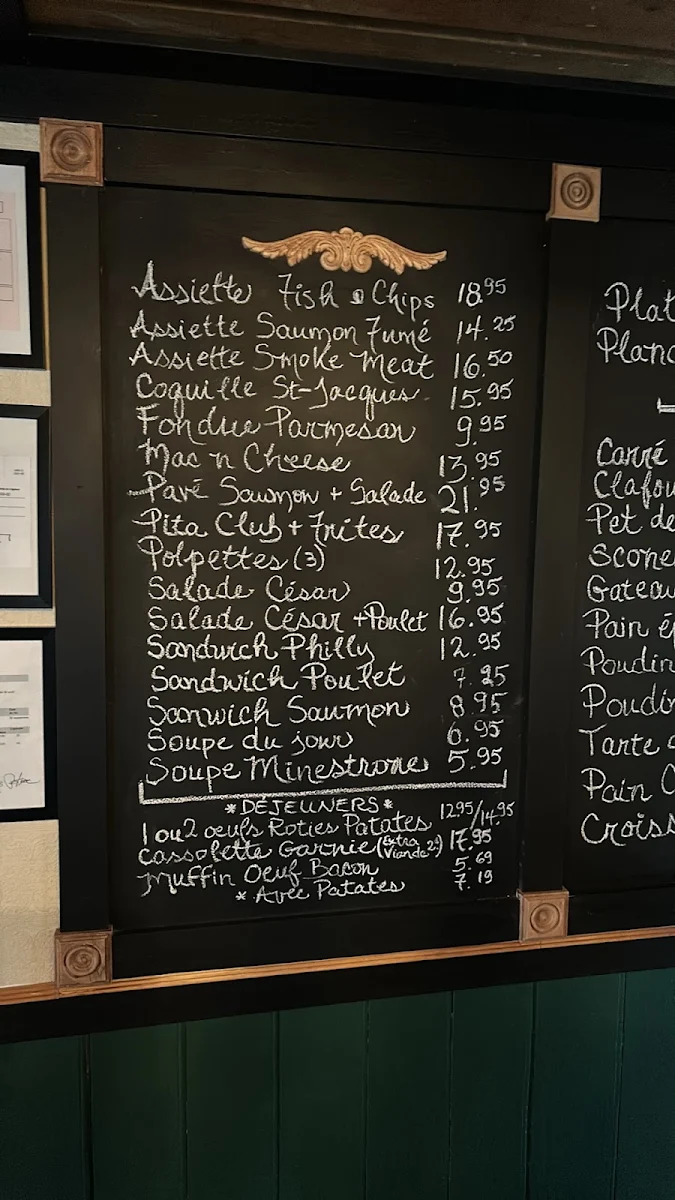 Assiette Fish & Chips 18.95
Assiette Saumon Fumé 14.25
Assiette Smoke Meat 16.50
Coquille St-Jacques 15.95
Fondue Parmesan 9.95
Mac n Cheese 13.95
Pavé Saumon + Salade 21.95
Pita Club + Frites 17.95
Polpettes (3) 12.95
Salade César 9.95
Salade César + Poulet 16.95
Sandwich Philly 12.95
Sandwich Poulet 7.25
Sanwich Saumon 8.95
Soupe du jour 6.95
Soupe Minestrone 5.95
*DÉJEUNERS*
1 ou 2 oeufs Roties Patates 12.95/14.95
Cassolette Garnie (Extra Viande 2$) 17.95
Muffin Oeuf Bacon 5.69
* Avec Patates 7.19
Plat
Planc
Carré
Clafou
Pet de
Scone
Gateau
Pain ép
Poudin
Poudin
Tarte
Pain C
Croiss